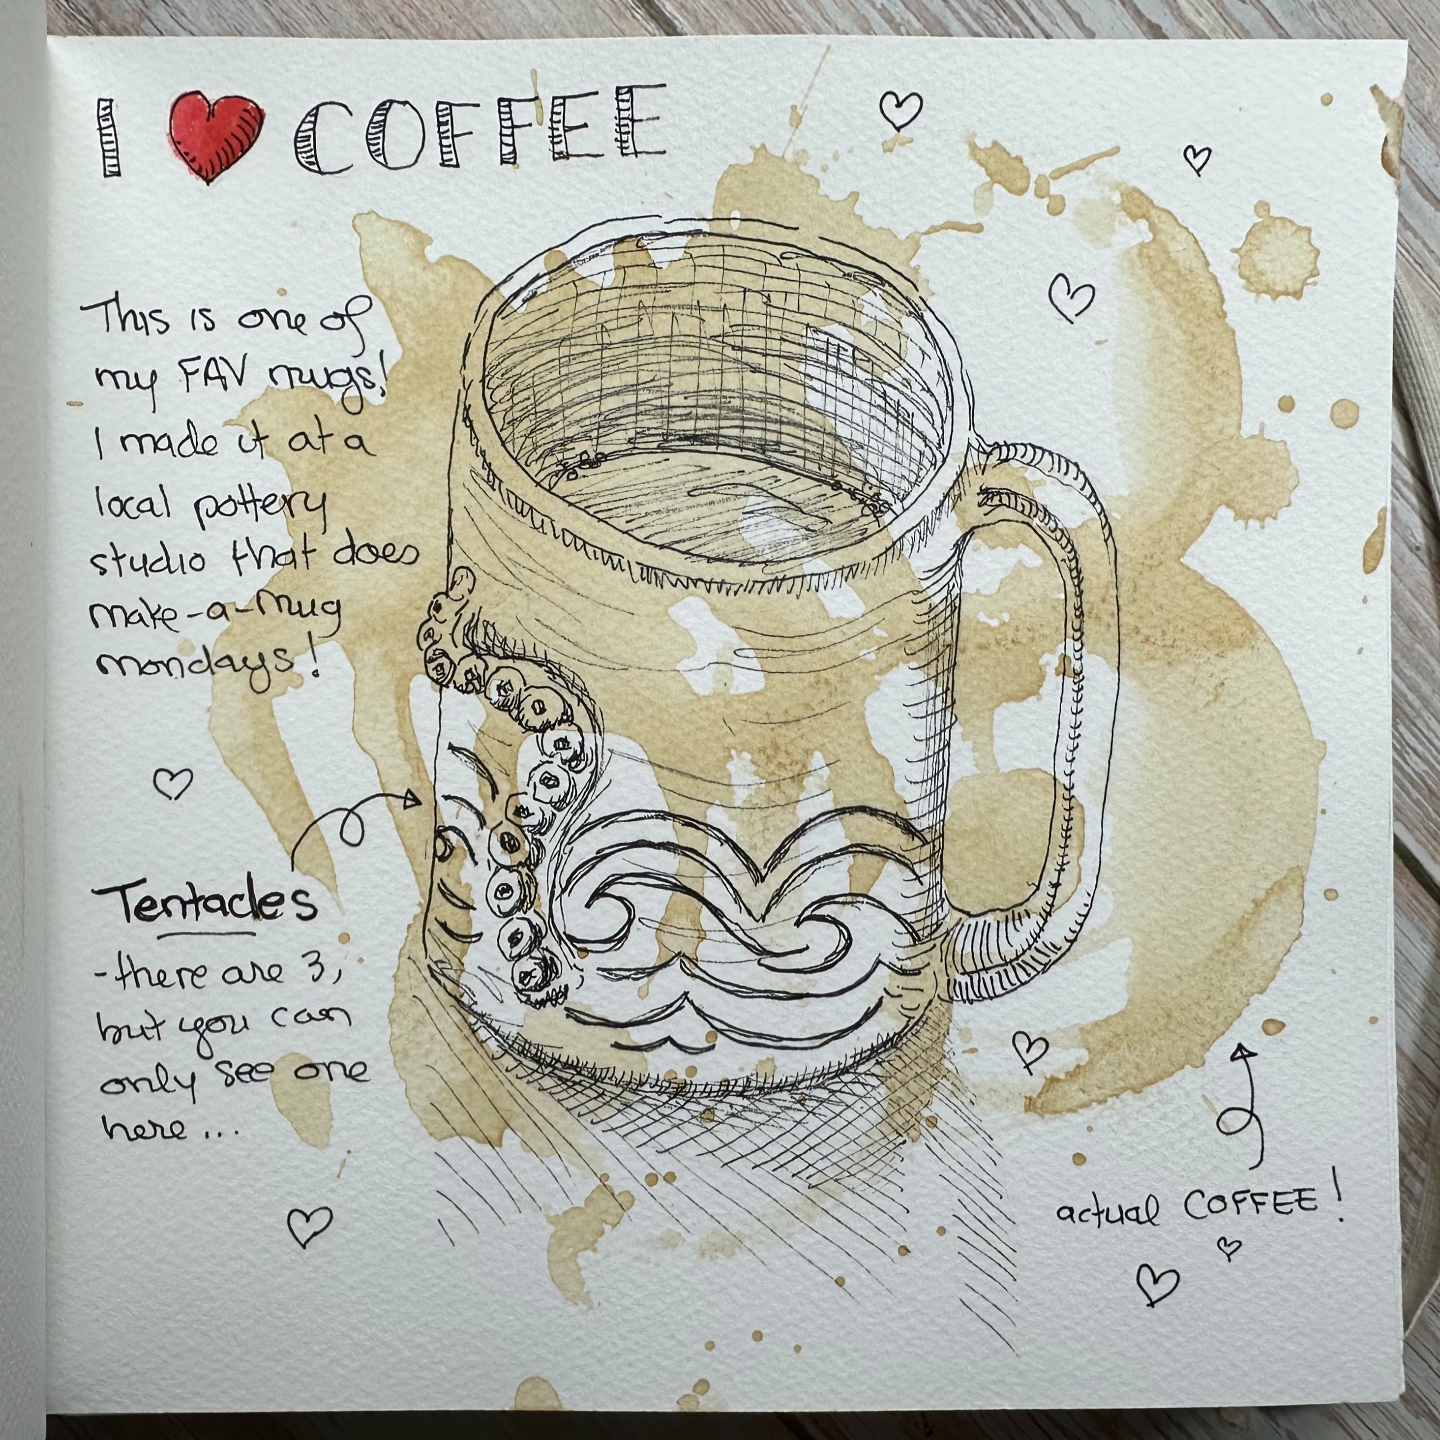 I ❤ COFFEE
This is one of
my FAV mugs!
I made it at a
local pottery
studio that does
make-a-mug
mondays!
Tentacles
-there are 3,
but you can
only see one
here...
actual COFFEE!